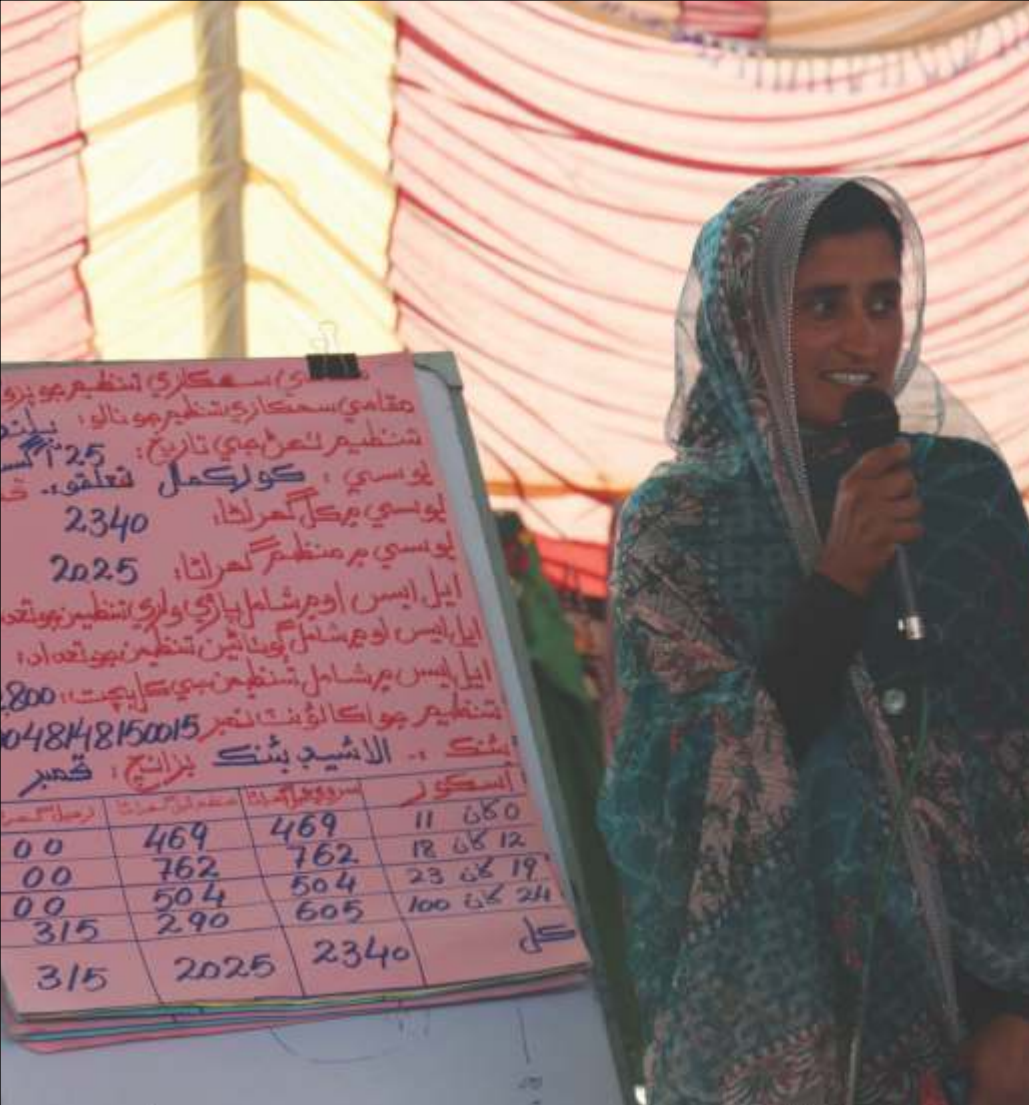 سهڪاري تنظيم جو پرو
مقامي سهڪاري تنظيم جو نالو:
تنظيم ٺهڻ جي تاريخ: 25 آگس
يوسي: ڪورڪمال تعلقو:۔
يوسي ۾ ڪل گهراڻا: 2340
يوسي ۾ منظم گهراڻا: 2025
ايل ايس او ۾ شامل پاڙي واري تنظيمن جو تعدا
ايل ايس او ۾ شامل ڳوٺاڻين تنظيمن جو تعداد:
ايل ايس ۾ شامل تنظيمن جي ڪل بچت: 800
تنظيم جو اڪائونٽ نمبر 0048148150015
بئنڪ :۔ الاشيد بئنڪ برانچ: قمبر
اسڪور
0 کان 11 469 469 00
12 کان 18 762 762 00
19 کان 23 504 504 00
24 کان 100 605 290 315
ڪل 2340 2025 315